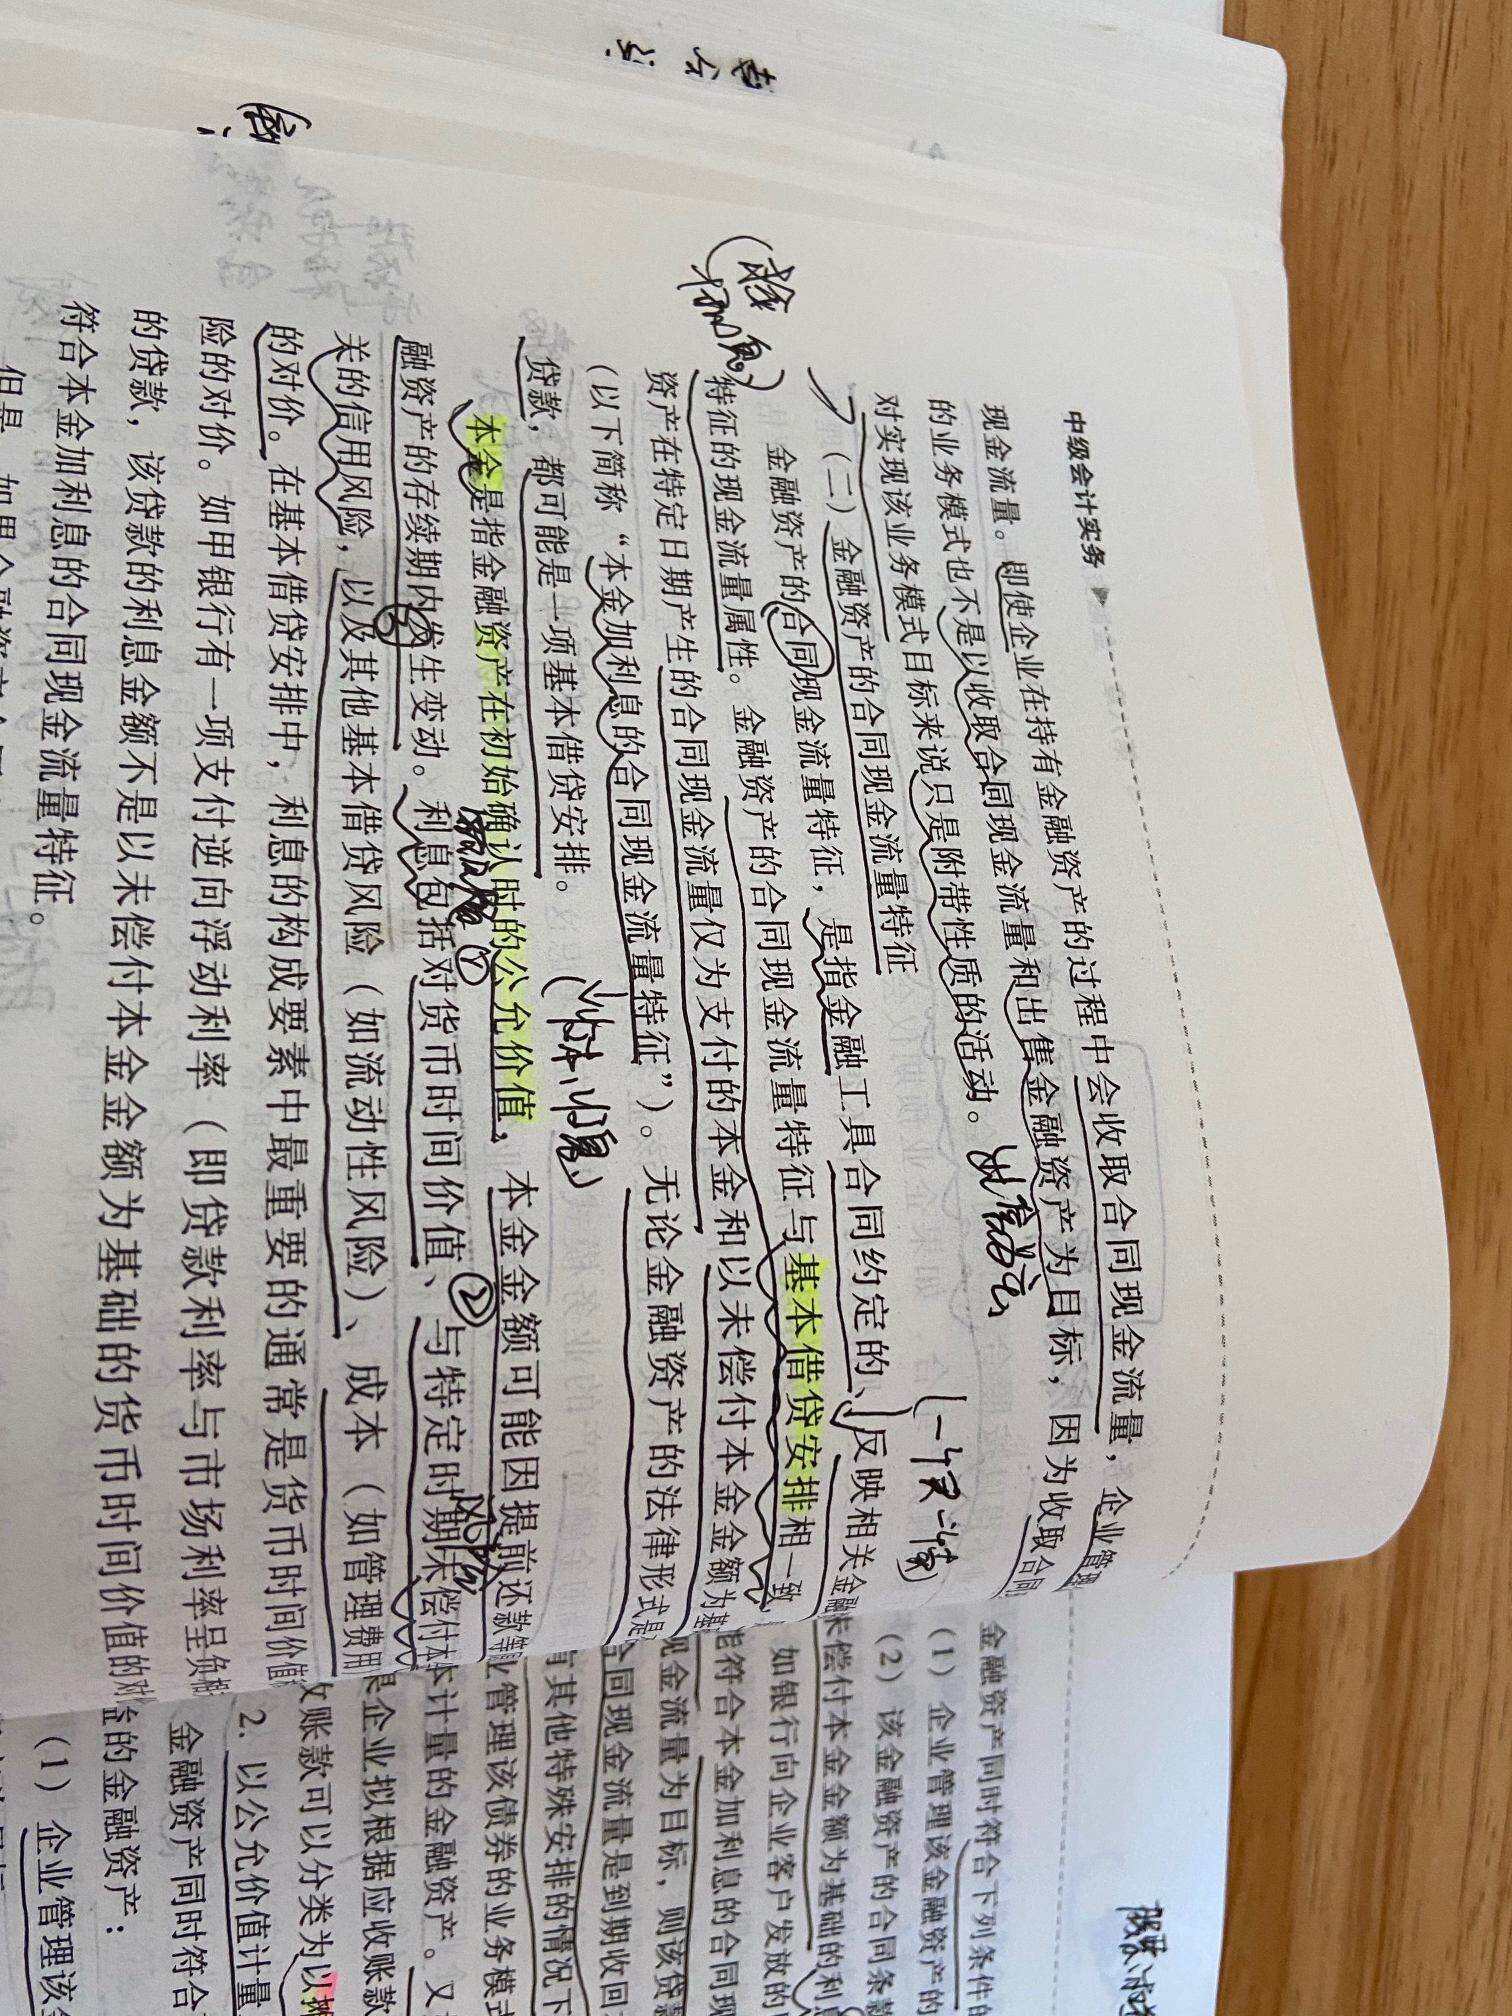 中级会计实务
现金流量。即使企业在持有金融资产的过程中会收取合同现金流量，企业管理
的业务模式也不是以收取合同现金流量和出售金融资产为目标，因为收取合同
对实现该业务模式目标来说只是附带性质的活动。
（二）金融资产的合同现金流量特征
金融资产的合同现金流量特征，是指金融工具合同约定的、反映相关金融
特征的现金流量属性。金融资产的合同现金流量特征与基本借贷安排相一致，
资产在特定日期产生的合同现金流量仅为支付的本金和以未偿付本金金额为基
（以下简称“本金加利息的合同现金流量特征”）。无论金融资产的法律形式是
贷款，都可能是一项基本借贷安排。
本金是指金融资产在初始确认时的公允价值，本金金额可能因提前还款等
融资产的存续期内发生变动。利息包括对货币时间价值、②与特定时期未偿付本
关的信用风险，以及其他基本借贷风险（如流动性风险）、成本（如管理费用
的对价。在基本借贷安排中，利息的构成要素中最重要的通常是货币时间价值
险的对价。如甲银行有一项支付逆向浮动利率（即贷款利率与市场利率呈负相
的贷款，该贷款的利息金额不是以未偿付本金金额为基础的货币时间价值的对
符合本金加利息的合同现金流量特征。
金融资产同时符合下列条件的
（1）企业管理该金融资产的
（2）该金融资产的合同条款
未偿付本金金额为基础的利息
如银行向企业客户发放的
能符合本金加利息的合同现
现金流量为目标，则该贷款
合同现金流量是到期收回
有其他特殊安排的情况下
业管理该债券的业务模式
本计量的金融资产。又
良企业拟根据应收账款
收账款可以分类为以摊
2. 以公允价值计量
金融资产同时符合
的金融资产：
（1）企业管理该金